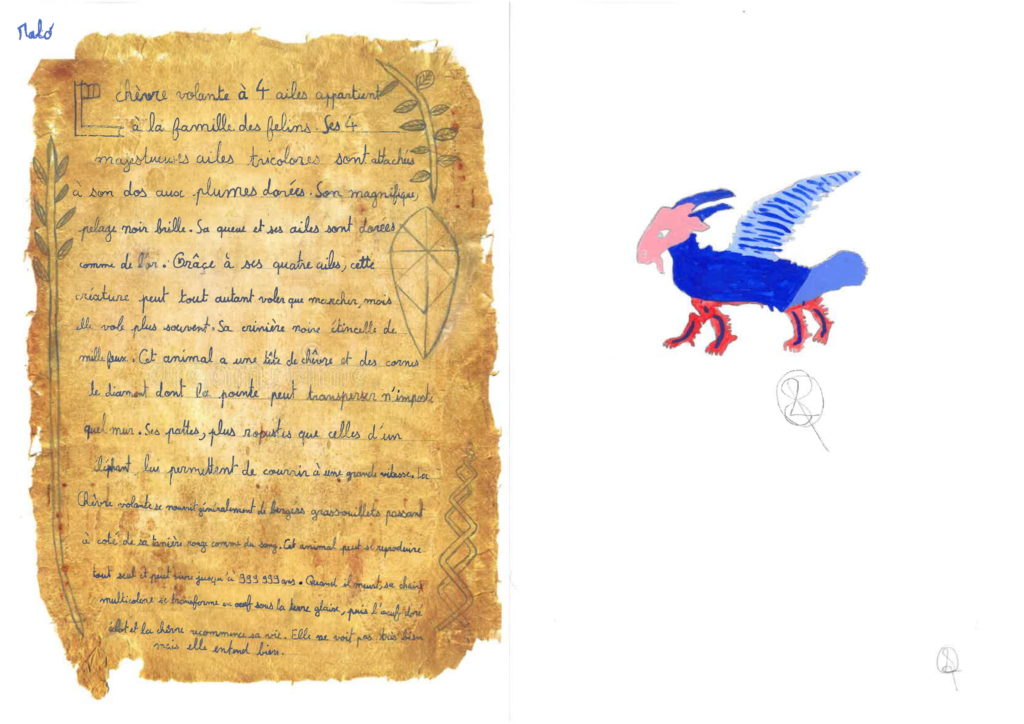 Malo
La chèvre volante à 4 ailes appartient
à la famille des felins. Ses 4
majestueuses ailes tricolores sont attachées
à son dos aux plumes dorées. Son magnifique,
pelage noir brille. Sa queue et ses ailes sont dorées
comme de l'or. Grâçe à ses quatre ailes, cette
créature peut tout autant voler que marcher, mais
elle vole plus souvent. Sa crinière noire étincelle de
mille feux. Cet animal a une tête de chèvre et des cornes
de diamant dont la pointe peut transperser n'importe
quel mur. Ses pattes, plus robustes que celles d'un
éléphant leur permettent de courrir à une grande vitesse. La
Chèvre volante se nourrit généralement de bergers grassouillets passant
à coté de sa tanière rouge comme du sang. Cet animal peut se reproduire
tout seul et peut vivre jusqu'à 999 999 ans. Quand il meurt, sa chair
multicolore se transforme en œuf sous la terre glaise, puis l'œuf doré
éclot et la chèvre recommence sa vie. Elle ne voit pas très bien
mais elle entend bien.